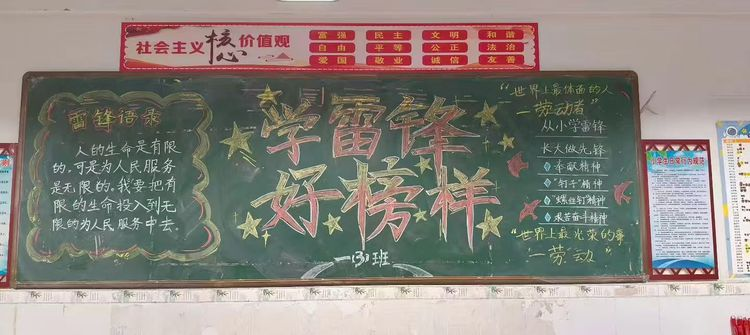 社会主义核心价值观
富强 民主 文明 和谐
自由 平等 公正 法治
爱国 敬业 诚信 友善
雷锋语录
人的生命是有限
的,可是为人民服务
是无限的,我要把有
限的生命投入到无
限的为人民服务中去。
学雷锋
好榜样
一(3)班
“世界上最体面的人
一劳动者”
从小学雷锋
长大做先锋
奉献精神
“钉子”精神
“螺丝钉”精神
艰苦奋斗精神
“世界上最光荣的事
一劳动”
小学生日常行为规范